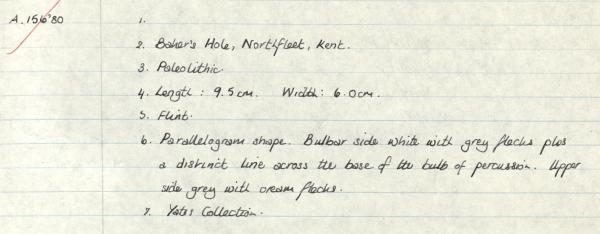 A.156'80 1.
2. Baker's Hole, Northfleet, Kent.
3. Paleolithic.
4. Length : 9.5cm. Width: 6.0cm.
5. Flint.
6. Parallelogram shape. Bulbar side white with grey flecks plus
a distinct line across the base of the bulb of percussion. Upper
side grey with cream flecks.
7. Yates Collection.